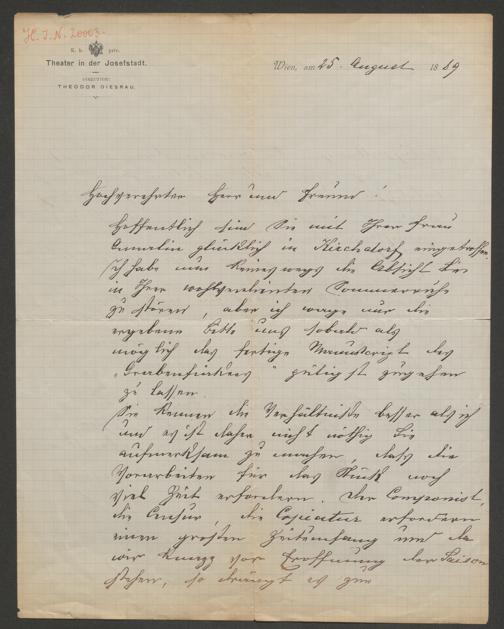 H.I.N. 20003.
K. k. priv.
Theater in der Josefstadt.
DIRECTION:
THEODOR GIESRAU.
Wien, am 25. August 1889
Hochverehrter Herr und Freund!
Hoffentlich sind Sie mit Ihrer Frau
Gemalin glücklich in Kirchdorf eingetroffen
Ich habe nun keineswegs die Absicht Sie
in Ihrer wohlverdienten Sommerruhe
zu stören, aber ich wage nur die
ergebene Bitte uns sobald als
möglich das fertige Manuscript des
"        " gütigst zugehen
zu lassen.
Sie kennen die Verhältnisse besser als ich
und es ist daher nicht nöthig Sie
aufmerksam zu machen, dass die
Vorarbeiten für das Stück noch
viel Zeit erfordern. Der Componist,
die Censur, die Copiatur erfordern
einen grossen Zeitumfang und da
wir knapp vor Eröffnung der Saison
stehen, so drängt es zur